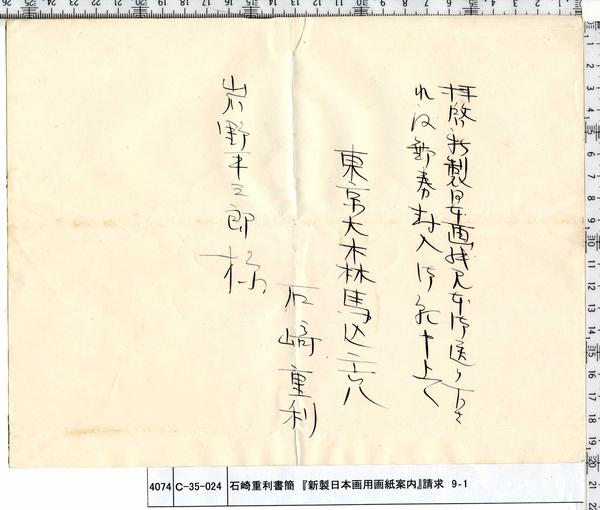 拝啓新製日本画紙見本御送り下さ
れ度郵券封入御願申上く
東京大木林馬込二六八
石崎重利
岩野平三郎様
4074 C-35-024 石崎重利書簡 『新製日本画用画紙案内』請求 9-1